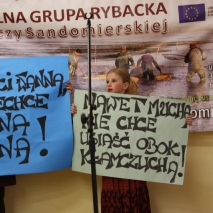 LNA GRUPA RYBACKA
CZY SANDOMIERSKIEJ
CI SANNA
ECHCE
NĄ
NĄ !
NAWET MUCHA
NIE CHCE
USIĄŚĆ OBOK
KŁAMCZUCHA !